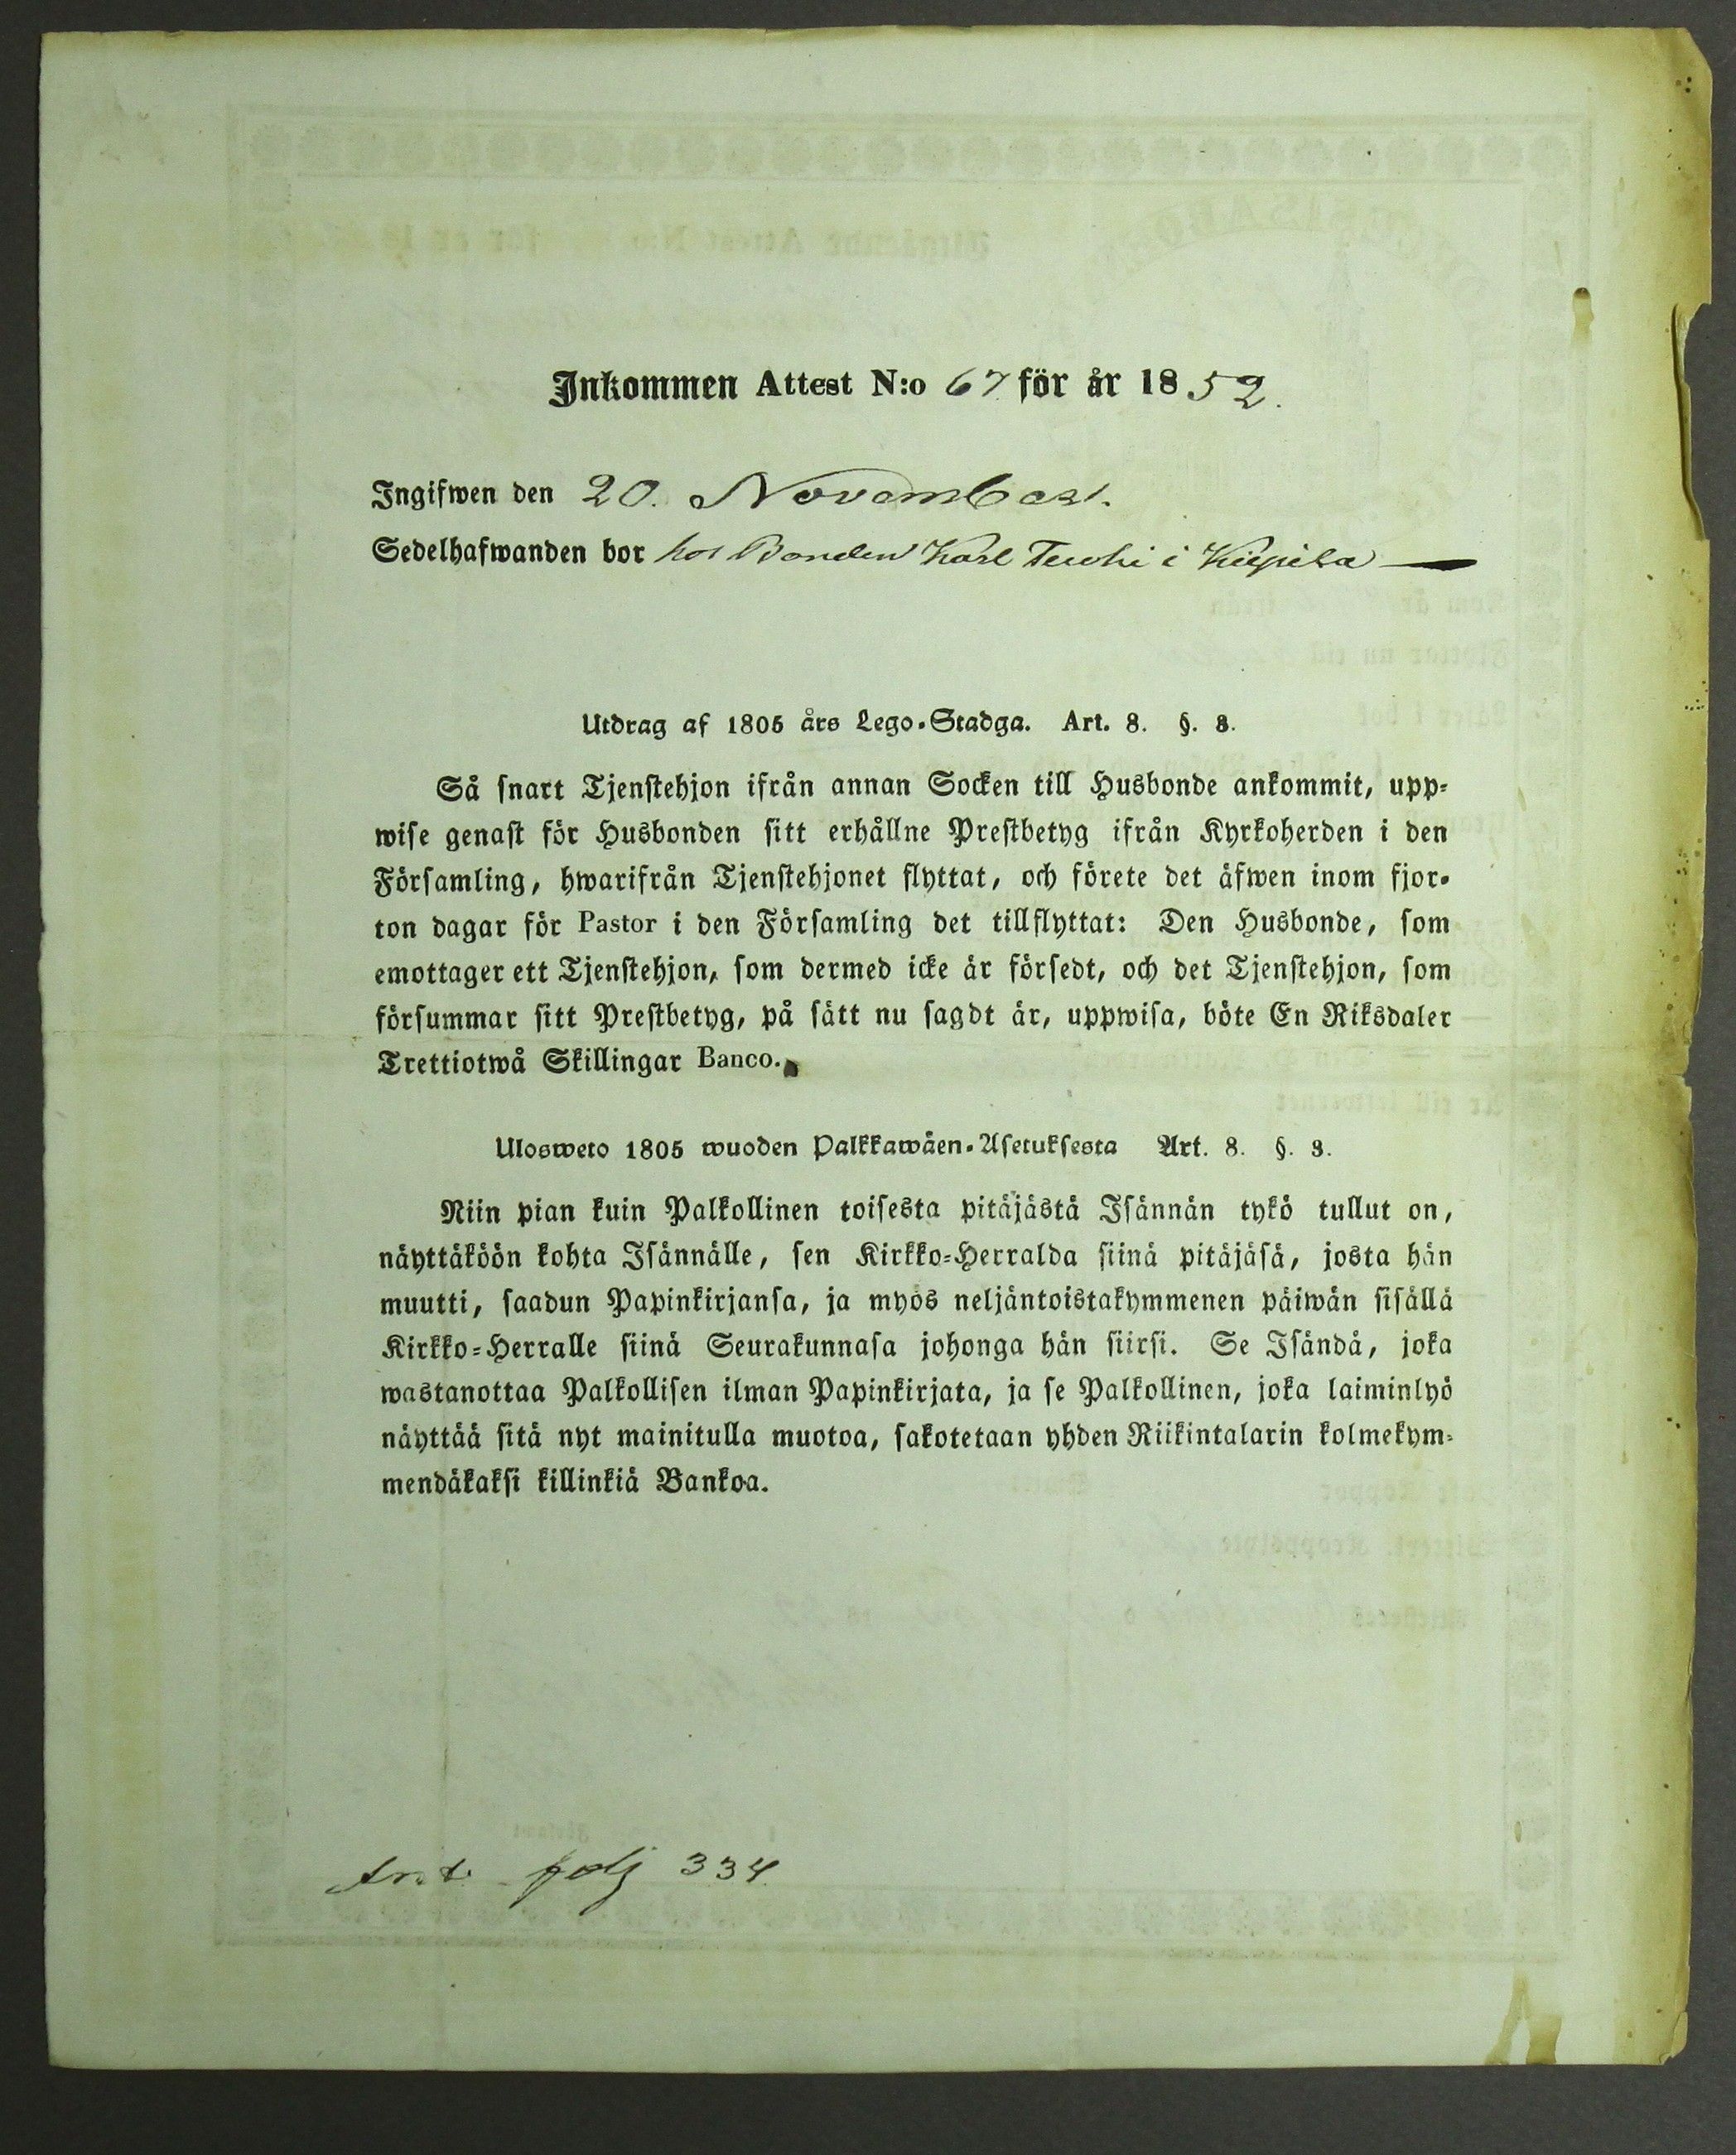 Inkommen Attest N:o 67 för år 1852.
Ingifwen den 20. November.
Sedelhafwanden bor hos Bonden Karl Terwhi i Kiipila
Utdrag af 1805 års Lego-Stadga. Art. 8. §. 3.
Så snart Tjenstehjon ifrån annan Socken till Husbonde ankommit, upp-
wise genast för Husbonden sitt erhållne Prestbetyg ifrån Kyrkoherden i den
Församling, hwarifrån Tjenstehjonet flyttat, och förete det äfwen inom fjor-
ton dagar för Pastor i den Församling det tillflyttat: Den Husbonde, som
emottager ett Tjenstehjon, som dermed icke är försedt, och det Tjenstehjon, som
försummar sitt Prestbetyg, på sätt nu sagdt är, uppwisa, böte En Riksdaler
Trettiotwå Skillingar Banco.
Ulosweto 1805 wuoden Palkkawäen-Asetuksesta Art. 8. §. 3.
Niin pian kuin Palkollinen toisesta pitäjästä Isännän tykö tullut on,
näyttäköön kohta Isännälle, sen Kirkko-Herralda siinä pitäjäsä, josta hän
muutti, saadun Papinkirjansa, ja myös neljäntoistakymmenen päiwän sisällä
Kirkko-Herralle siinä Seurakunnasa johonga hän siirsi. Se Isändä, joka
wastanottaa Palkollisen ilman Papinkirjata, ja se Palkollinen, joka laiminlyö
näyttää sitä nyt mainitulla muotoa, sakotetaan yhden Riikintalarin kolmekym-
mendäkaksi killinkiä Bankoa.
334